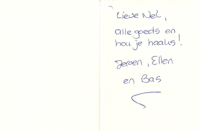 Lieve Nel,
alle goeds en
hou je haaks!
Jeroen, Ellen
en Bas